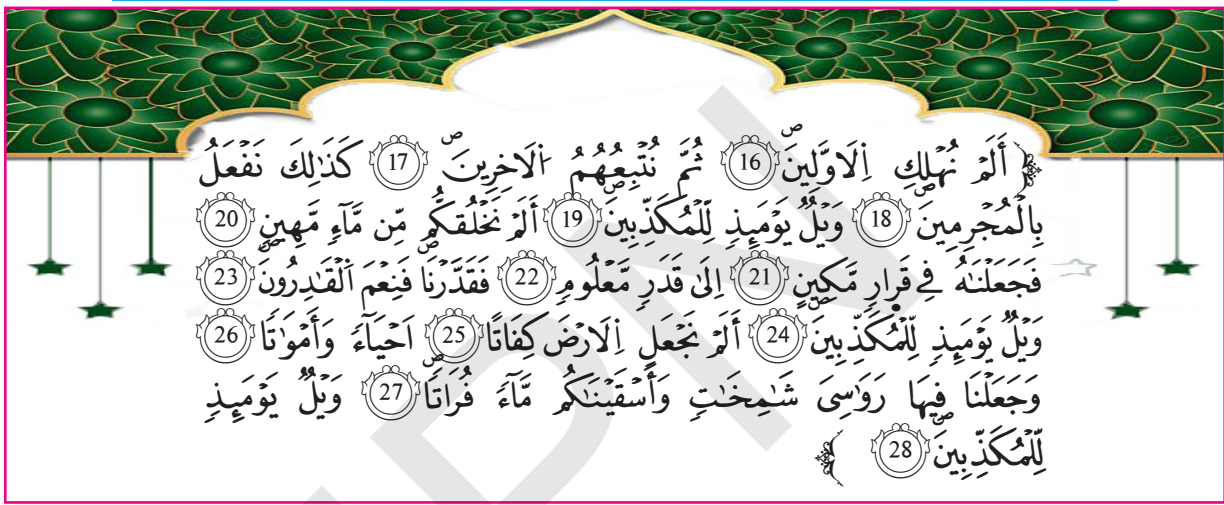 ﴿ أَلَمْ نُهْلِكِ اِ۬لَاوَّلِينَۖ 16 ثُمَّ نُتْبِعُهُمُ اُ۬لَاخِرِينَۖ 17 كَذَٰلِكَ نَفْعَلُ
بِالْمُجْرِمِينَۖ 18 وَيْلٌ يَوْمَئِذٍ لِّلْمُكَذِّبِينَۖ 19 أَلَمْ نَخْلُقكُّم مِّن مَّآءٍ مَّهِينٍۖ 20
فَجَعَلْنَٰهُ فِے قَرارٍ مَّكِينٍ 21 إِلَىٰ قَدَرٍ مَّعْلُومٍۖ 22 فَقَدَّرْنَا فَنِعْمَ اَ۬لْقَٰدِرُونَۖ 23
وَيْلٌ يَوْمَئِذٍ لِّلْمُكَذِّبِينَۖ 24 أَلَمْ نَجْعَلِ اِ۬لَارْضَ كِفَاتًا 25 اَحْيَآءً وَأَمْوَٰتًا 26
وَجَعَلْنَا فِيهَا رَوَٰسِىَ شَٰمِخَٰتٍ وَأَسْقَيْنَٰكُم مَّآءً فُرَاتًاۖ 27 وَيْلٌ يَوْمَئِذٍ
لِّلْمُكَذِّبِينَۖ 28 ﴾